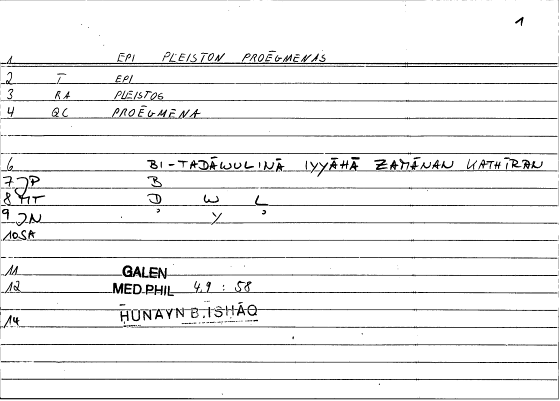 1
1 EPI PLEISTON PROĒGMENAS
2 T EPI
3 RA PLEISTOS
4 QC PROĒGMENA
6 BI-TADĀWULINĀ IYYĀHĀ ZAMĀNAN KATHĪRAN
7 JP B
8 MT D W L
9 JN ʾ Y ʾ
10 SA
11 GALEN
12 MED.PHIL 4.9 : 58
ḤUNAYN B.ISḤĀQ
14